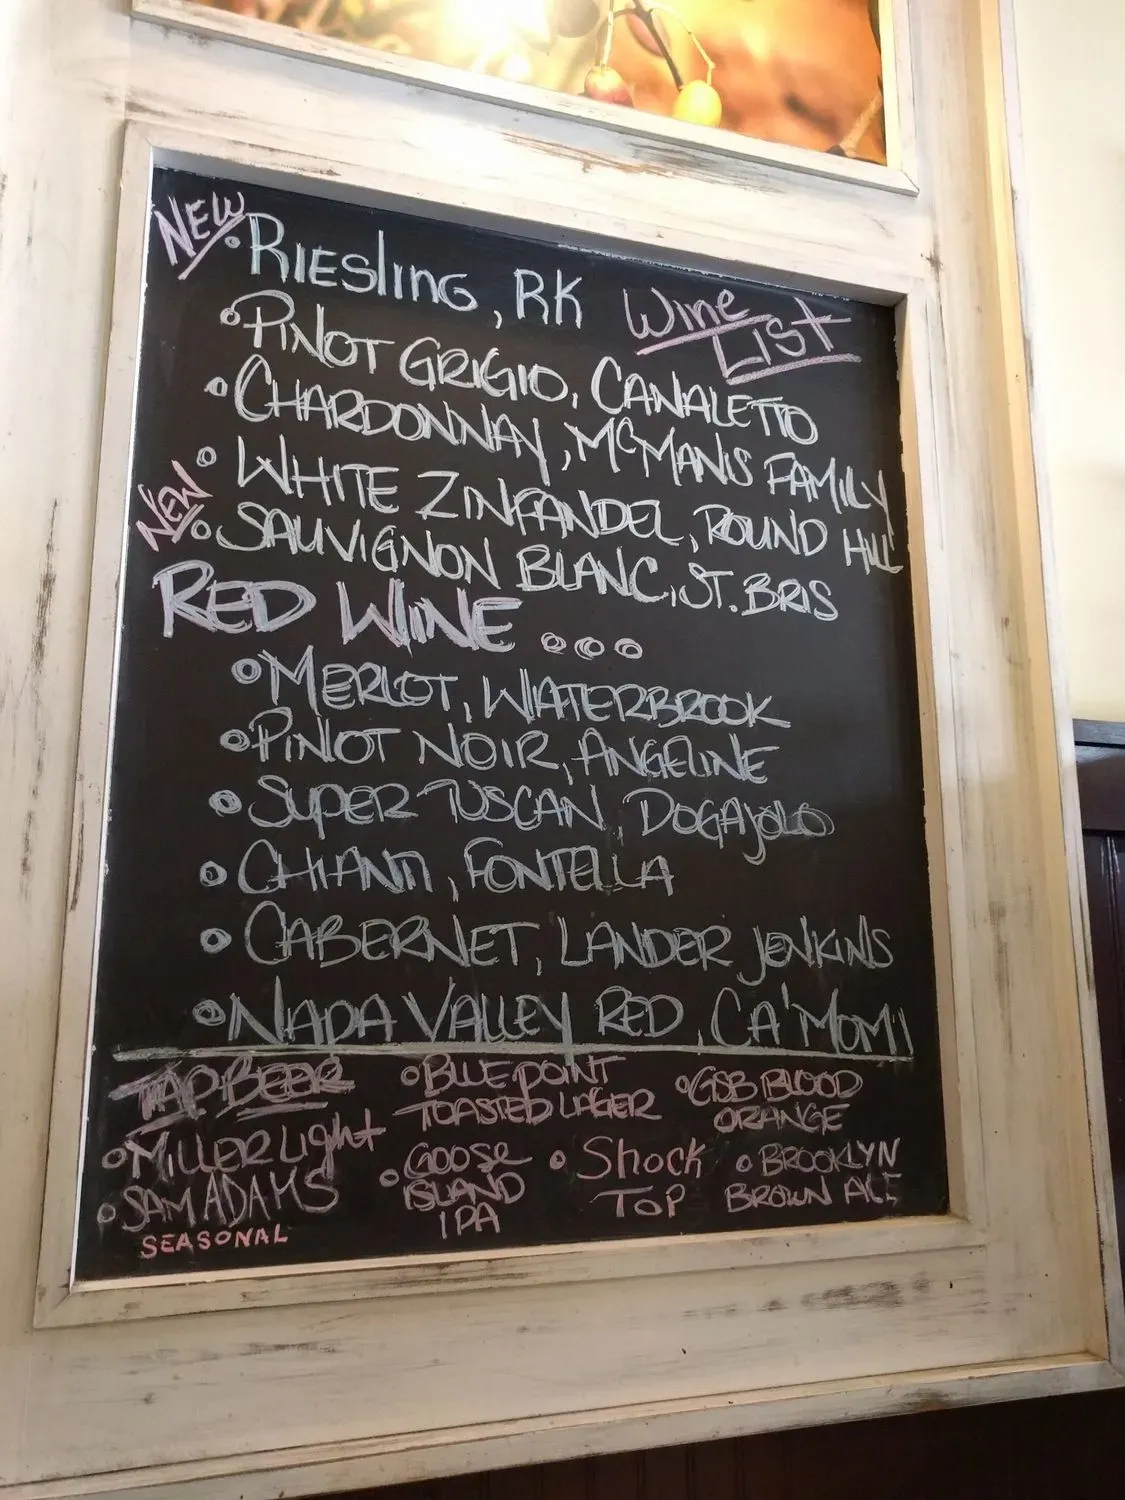 NEW
Wine
LIST
• RIESlING, RK
• PINOT GRIGIO, CANALETTO
• CHARDONNAY, McMANIS FAMILY
• WHITE ZINFANDEL, ROUND HILL
NEW
• SAUVIGNON BLANC, ST. BRIS
RED WINE ...
• MERLOT, WATERBROOK
• PINOT NOIR, ANGELINE
• SUPER TUSCAN, DOGAJOLO
• CHIANTI, FONTELLA
• CABERNET, LANDER JENKINS
• NAPA VALLEY RED, CA'MOMI
TAP BEER
• MILLER LIght
• SAM ADAMS
SEASONAL
• BLUE POINT
TOASTED LAGER
• GOOSE
ISLAND
IPA
• Shock
TOP
• GSB BLOOD
ORANGE
• BROOKLYN
BROWN ALE